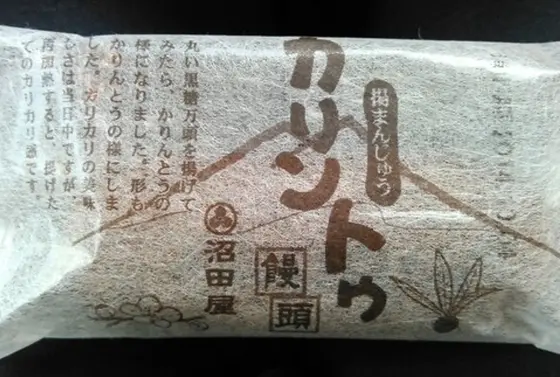 揚まんじゅう
カリントウ
饅頭
沼田屋
丸い黒糖万頭を揚げて
みたら、かりんとうの
様になりました。形も
かりんとうの様にしま
した。カリカリの美味
しさは当日中ですが、
再加熱すると、揚げた
てのカリカリ感です。